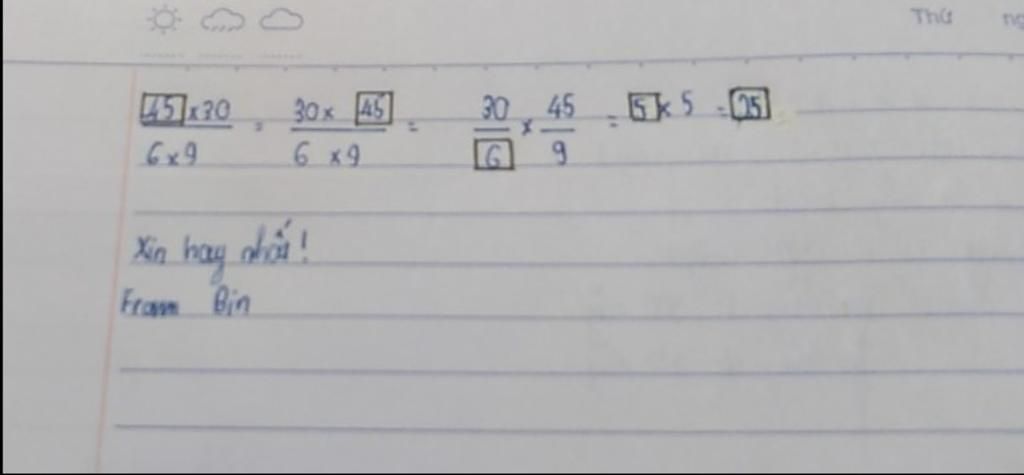 Thứ ng
45 x 30 / 6 x 9 = 30 x 45 / 6 x 9 = 30/6 x 45/9 = 5 x 5 = 25
Xin hay nhất!
From Bin